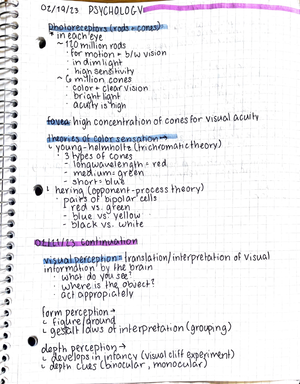 02/19/23 PSYCHOLOGY
photoreceptors (rods + cones)
* in each eye
~ 120 million rods
· for motion + b/w vision
· in dim light
· high sensitivity
~ 6 million cones
· color + clear vision
· bright light
· acuity is high
fovea: high concentration of cones for visual acuity
theories of color sensation →
↳ young-helmholtz (trichromatic theory)
· 3 types of cones
- long wavelength = red
- medium: green
- short = blue
↳ hering (opponent-process theory)
· pairs of bipolar cells
- red vs. green
- blue vs. yellow
- black vs. white
continuation
visual perception = translation/interpretation of visual
information by the brain
· what do you see?
· where is the object?
· act appropiately
form perception →
↳ figure/ground
↳ gestalt laws of interpretation (grouping)
depth perception →
↳ develops in infancy (visual cliff experiment)
↳ depth clues (binocular, monocular)